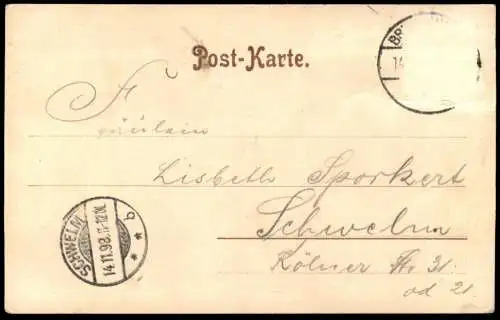 Post-Karte.
Bo
14
Fräulein
Lisbeth Sporkert
Schwelm
Kölner Str 31
od 21
SCHWELM
14.11.98.11-12N.
* * b